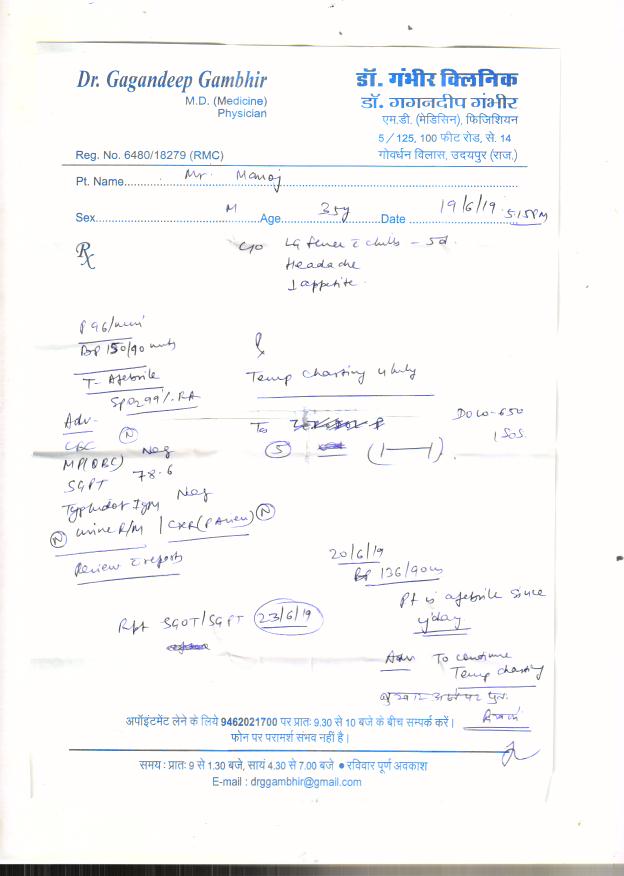 Dr. Gagandeep Gambhir
M.D. (Medicine)
Physician
Reg. No. 6480/18279 (RMC)
डॉ. गंभीर क्लिनिक
डॉ. गगनदीप गंभीर
एम.डी. (मेडिसिन), फिजिशियन
5/125, 100 फीट रोड़, से. 14
गोवर्धन विलास, उदयपुर (राज.)
Pt. Name Mr. Manoj
Sex M Age 35y Date 19/6/19 5:15PM
Rx
c/o LG fever c chills - 5d.
Headache
↓ appetite.
P 96/min
BP 150/90
T- Afebrile
SpO2 99% RA
Adv-
CBC (N)
MP(QBC) Neg
SGPT 78.6
Typhidot IgM Neg
(N) urine R/M / CXR(PA view) (N)
Review c reports
Temp charting 4 hrly
(5) (1—1)
DOLO-650
1 SOS.
20/6/19
BP 136/90
Pt is afebrile since
y'day
Rpt SGOT/SGPT 23/6/19
Adv To continue
Temp charting
बुखार आने पर पुनः
अपॉइंटमेंट लेने के लिये 9462021700 पर प्रातः 9.30 से 10 बजे के बीच सम्पर्क करें।
फोन पर परामर्श संभव नहीं है।
समय : प्रातः 9 से 1.30 बजे, सायं 4.30 से 7.00 बजे ● रविवार पूर्ण अवकाश
E-mail : drggambhir@gmail.com